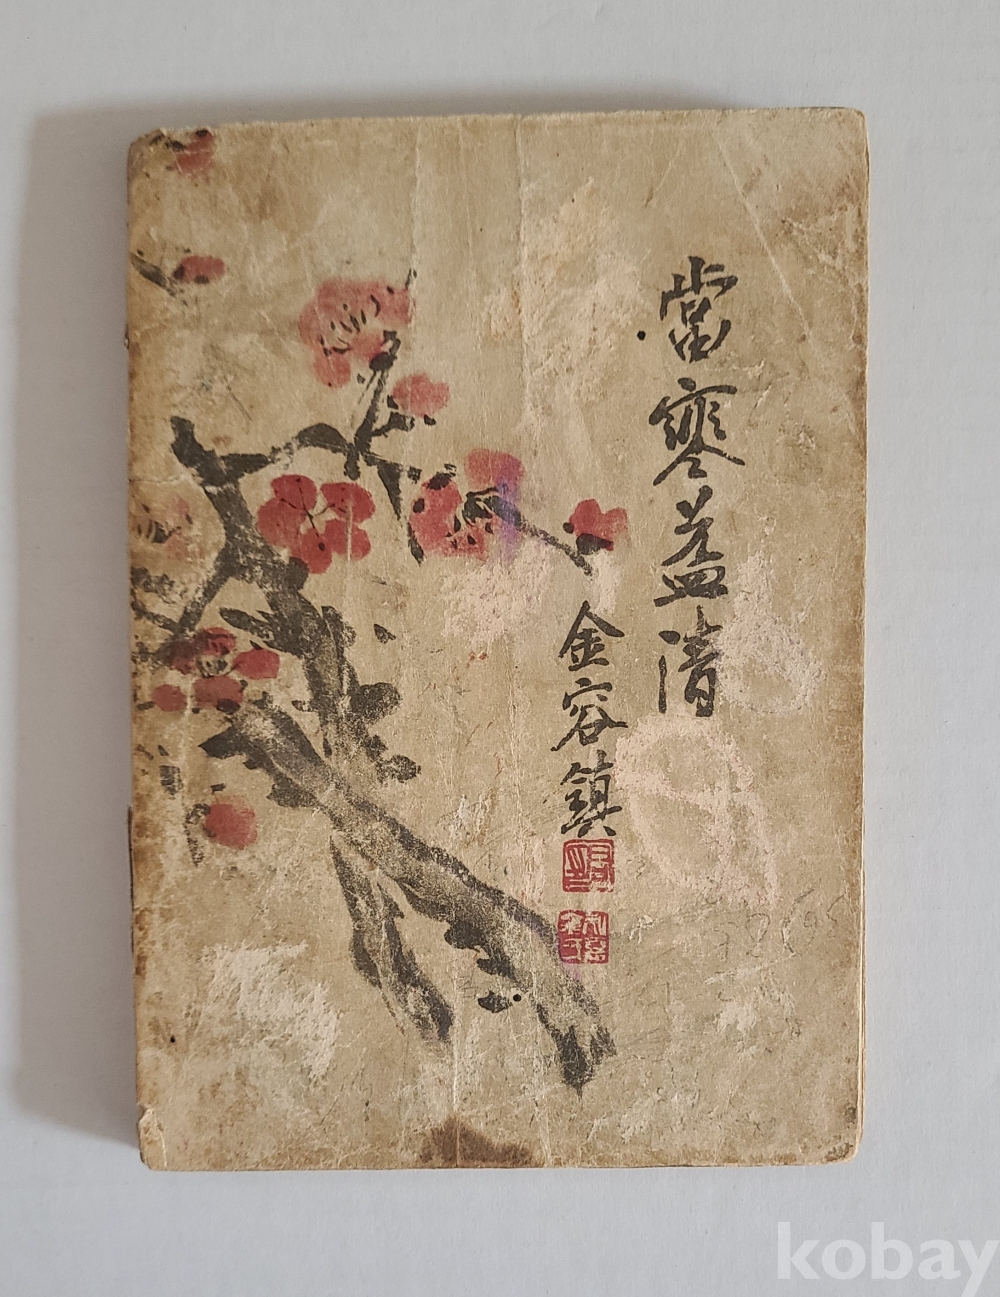 當寒益清
金容鎮
kobay